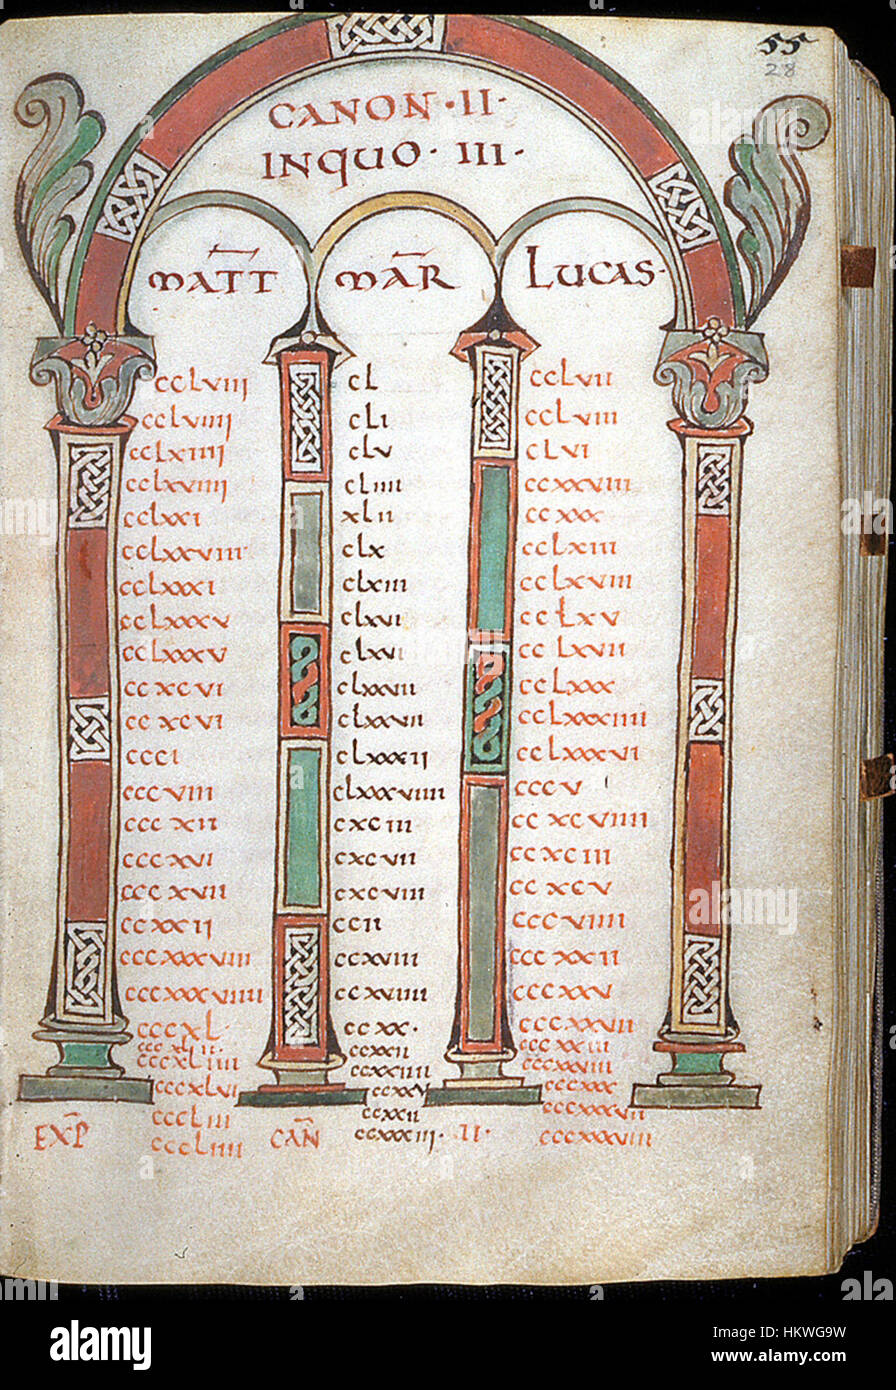 55
28
CANON · II ·
INQUO · III ·
MATT MAR LUCAS ·
cclviii cl cclvii
cclviiii cli cclviii
cclxiiii clv clvi
cclxviiii cliiii ccxxviii
cclxxi xlii ccxxx
cclxxviii clx cclxiii
cclxxxi clxiii cclxviii
cclxxxv clxvi cclxv
cclxxxv clxvi cclxvii
ccxcvi clxxvii cclxxx
ccxcvi clxxvii cclxxxiiii
ccci clxxxii cclxxxvi
cccviii clxxxviiii cccv
cccxii cxciii ccxcviiii
cccxvi cxcvii ccxciii
cccxvii cxcviii ccxcv
ccxxii ccii cccviiii
cccxxxviii ccxviii cccxxii
cccxxxviiii ccxviiii cccxxv
cccxl · ccxx · cccxxvii
cccxlii ccxxii cccxxiii
cccxliiii ccxxiiii cccxxviii
cccxlvi ccxxv cccxxx
cccliii ccxxii cccxxxvii
cccliiii ccxxxiii · cccxxxviii
EXP CAN II ·
alamy
Image ID: HKWG9W
www.alamy.com